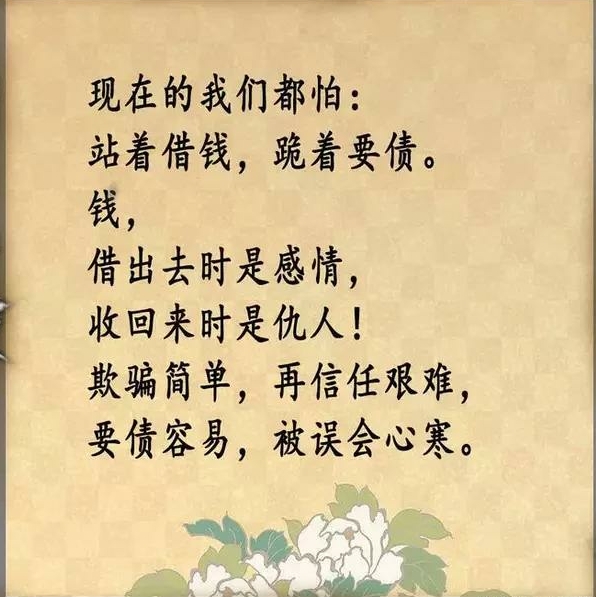 现在的我们都怕：
站着借钱，跪着要债。
钱，
借出去时是感情，
收回来时是仇人！
欺骗简单，再信任艰难，
要债容易，被误会心寒。